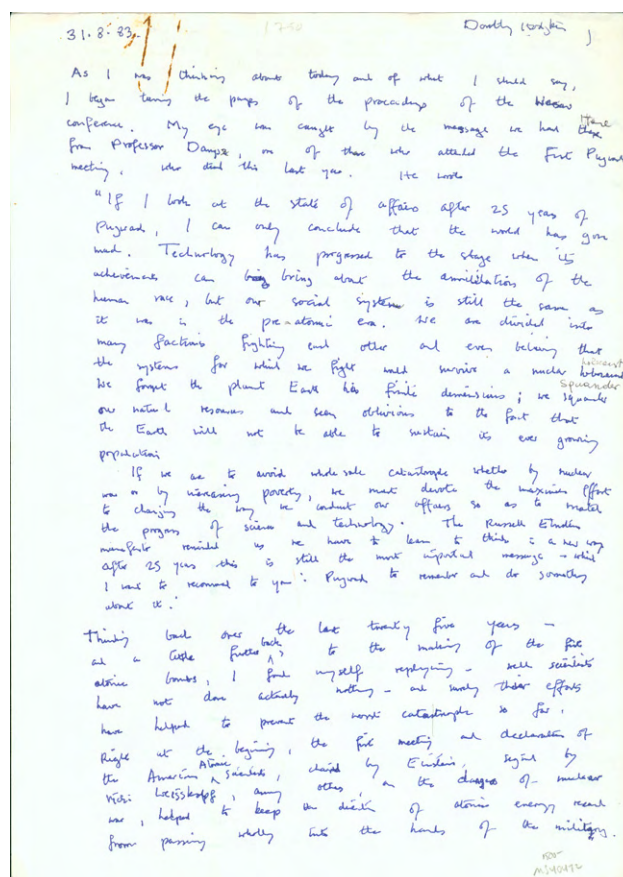 31.8.83. 1750 Dorothy Hodgkin 1
As I was thinking about today and of what I should say,
I began turning the pages of the proceedings of the Warsaw
conference. My eye was caught by the message we had there
from Professor Danysz, one of those who attended the First Pugwash
meeting, who died this last year. He wrote
"If I look at the state of affairs after 25 years of
Pugwash, I can only conclude that the world has gone
mad. Technology has progressed to the stage when its
achievements can bring about the annihilation of the
human race, but our social system is still the same as
it was in the pre-atomic era. We are divided into
many factions fighting each other and even believing that
the systems for which we fight would survive a nuclear holocaust
We forget the planet Earth has finite dimensions; we squander squander
our natural resources and seem oblivious to the fact that
the Earth will not be able to sustain its ever growing
population
If we are to avoid wholesale catastrophe whether by nuclear
war or by increasing poverty, we must devote the maximum effort
to changing the way we conduct our affairs so as to match
the progress of science and technology. The Russell Einstein
manifesto reminded us we have to learn to think in a new way
After 25 years this is still the most important message which
I want to recommend to you: Pugwash to remember and do something
about it."
Thinking back over the last twenty five years –
and a little further back, to the making of the first
atomic bombs, I find myself replying – well scientists
have not done actually nothing – and surely their efforts
have helped to prevent the worst catastrophe so far.
Right at the beginning, the first meeting and declaration of
the American Atomic scientists, chaired by Einstein, signed by
Vicki Weisskopf, among others, on the dangers of nuclear
war, helped to keep the direction of atomic energy research
from passing wholly into the hands of the military.